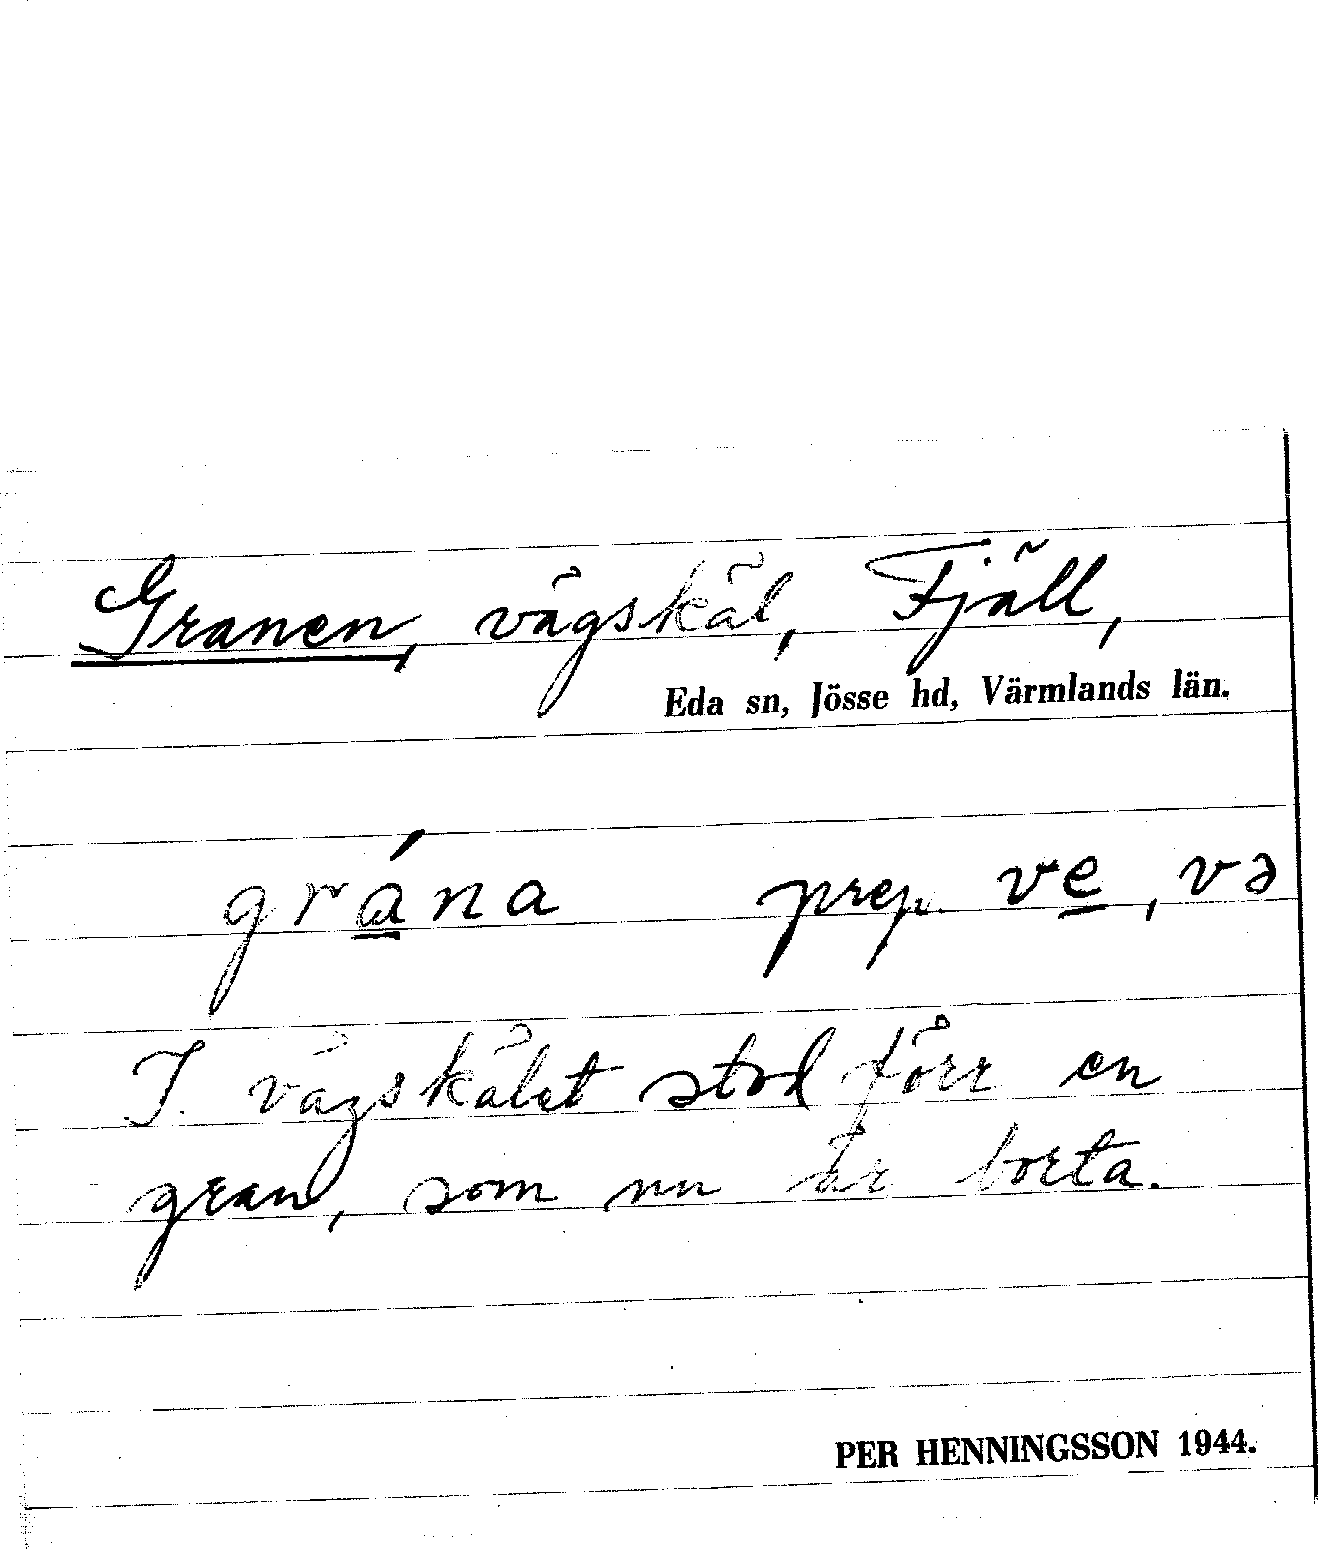 Granen, vägskäl, Fjäll,
Eda sn, Jösse hd, Värmlands län.
grána prep. ve, və
I vägskälet stod förr en
gran, som nu är borta.
PER HENNINGSSON 1944.